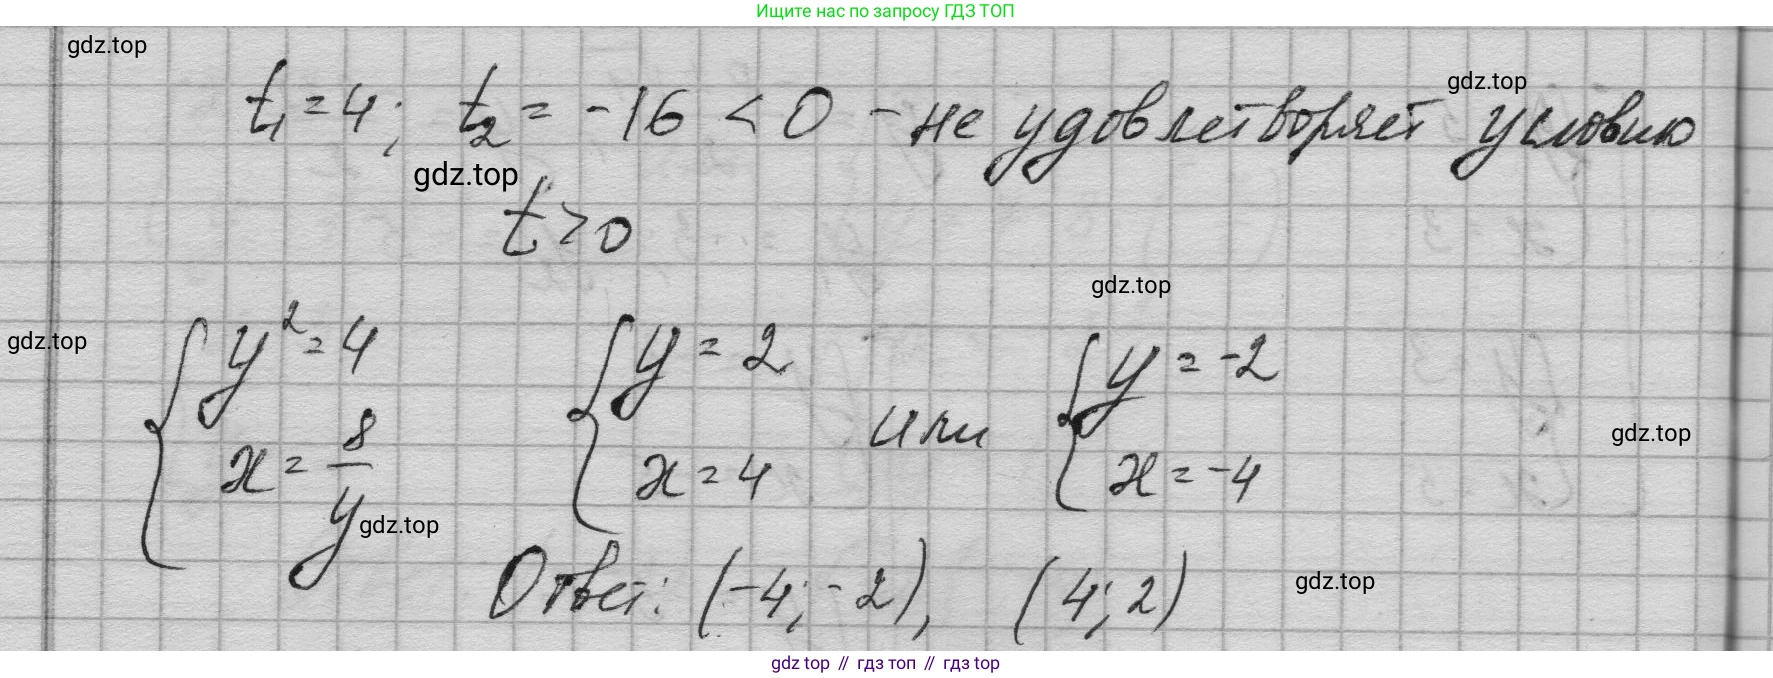 Ищите нас по запросу ГДЗ ТОП
gdz.top
gdz.top
t₁ = 4; t₂ = -16 < 0 - не удовлетворяет условию
gdz.top
t > 0
gdz.top
gdz.top
{ y² = 4 { y = 2 или { y = -2
x = 8/y x = 4 x = -4
gdz.top
gdz.top
Ответ: (-4; -2), (4; 2)
gdz.top
gdz top // гдз топ // гдз top